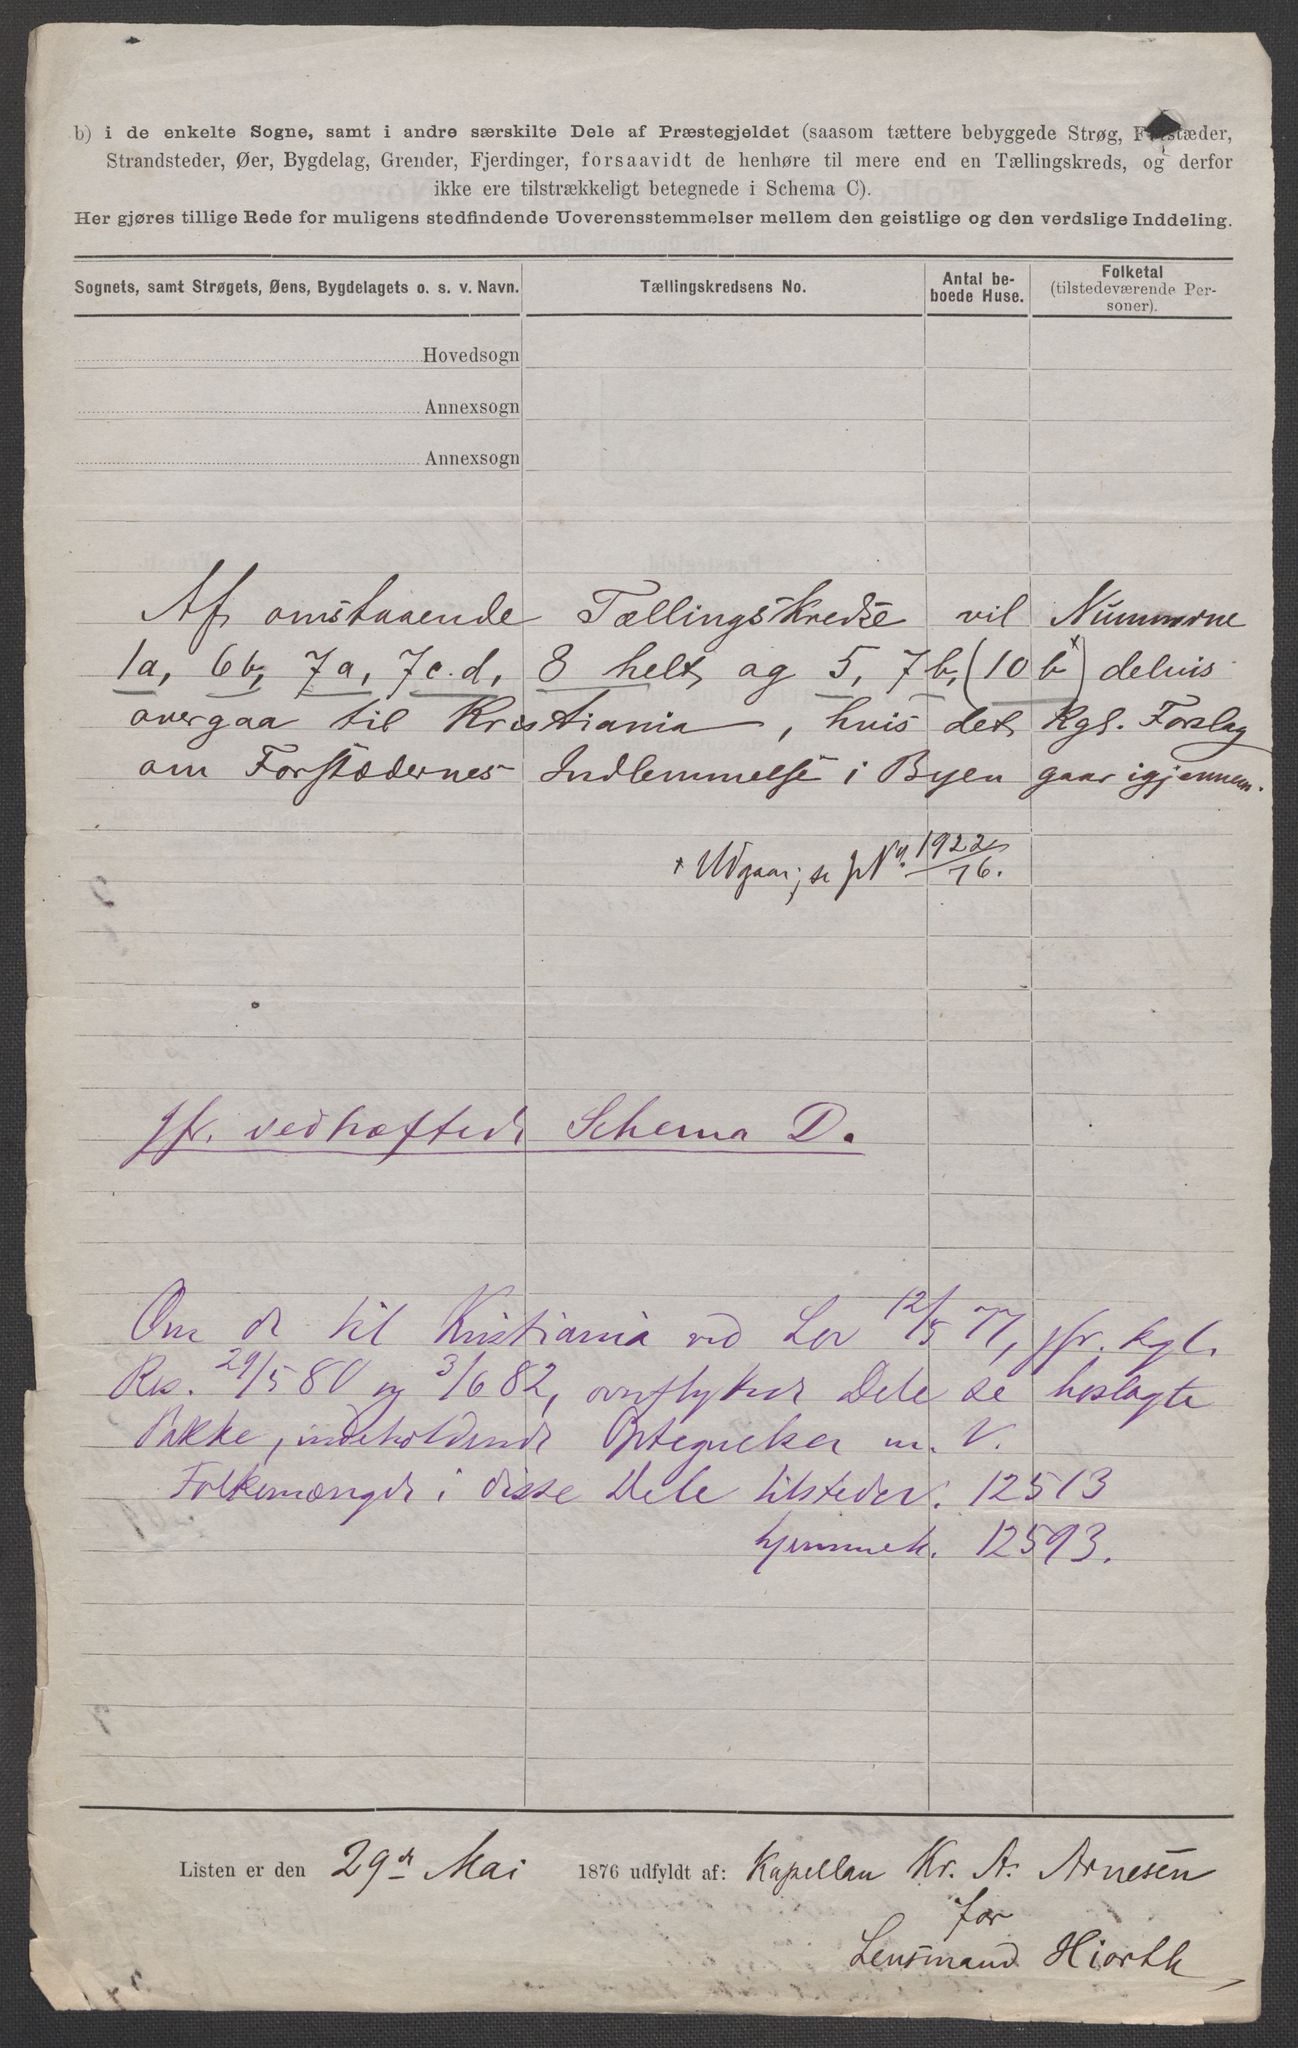 b) i de enkelte Sogne, samt i andre særskilte Dele af Præstegjeldet (saasom tættere bebyggede Strøg, Forstæder,
Strandsteder, Øer, Bygdelag, Grender, Fjerdinger, forsaavidt de henhøre til mere end en Tællingskreds, og derfor
ikke ere tilstrækkeligt betegnede i Schema C).
Her gjøres tillige Rede for muligens stedfindende Uoverensstemmelser mellem den geistlige og den verdslige Inddeling.
Sognets, samt Strøgets, Øens, Bygdelagets o. s. v. Navn.
Tællingskredsens No.
Antal be-
boede Huse.
Folketal
(tilstedeværende Per-
soner).
Hovedsogn
Annexsogn
Annexsogn
Af omstaaende Tællingskredse vil Nummerne
1a, 6b, 7a, 7c.d, 8 helt og 5, 7b, (10 b x) delvis
overgaa til Kristiania, hvis det Kgl. Forslag
om Forstædernes Indlemmelse i Byen gaar igjennem.
x Udgaar; se JN. 1922/76.
Jfr. vedhæftede Schema D.
Om de til Kristiania ved Lov 12/5 77, jfr. kgl.
Res. 29/5 80 og 3/6 82, overflyttede Dele se heslagte
Pakke, indeholdende Optegnelser m. V.
Folkemængde i disse Dele tilstedev. 12513
hjemmeh. 12593.
Listen er den 29de Mai 1876 udfyldt af: Kapellan Kr. A. Arnesen
for
Lensmand Hiorth